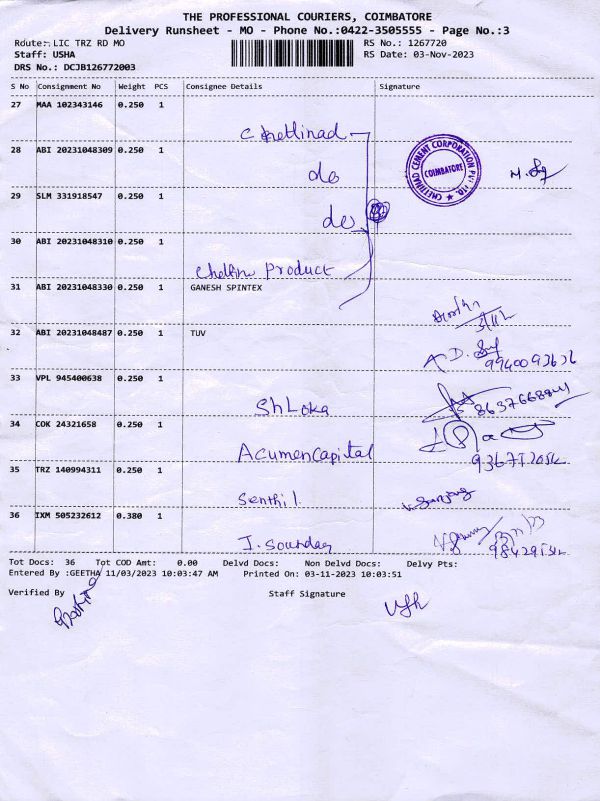 THE PROFESSIONAL COURIERS, COIMBATORE
Delivery Runsheet - MO - Phone No.:0422-3505555 - Page No.:3
Route:- LIC TRZ RD MO RS No.: 1267720
Staff: USHA RS Date: 03-Nov-2023
DRS No.: DCJB126772003
S No Consignment No Weight PCS Consignee Details Signature
27 MAA 102343146 0.250 1
Chettinad
28 ABI 20231048309 0.250 1
do
CHETTINAD CEMENT CORPORATION PVT. LTD.
COIMBATORE
29 SLM 331918547 0.250 1
do
30 ABI 20231048310 0.250 1
Product
31 ABI 20231048330 0.250 1 GANESH SPINTEX
32 ABI 20231048487 0.250 1 TUV
9940093636
33 VPL 945400638 0.250 1
ShLoka
34 COK 24321658 0.250 1
Acumen Capital
35 TRZ 140994311 0.250 1
Senthil
36 IXM 505232612 0.380 1
J. Soundar
Tot Docs: 36 Tot COD Amt: 0.00 Delvd Docs: Non Delvd Docs: Delvy Pts:
Entered By :GEETHA 11/03/2023 10:03:47 AM Printed On: 03-11-2023 10:03:51
Verified By Staff Signature